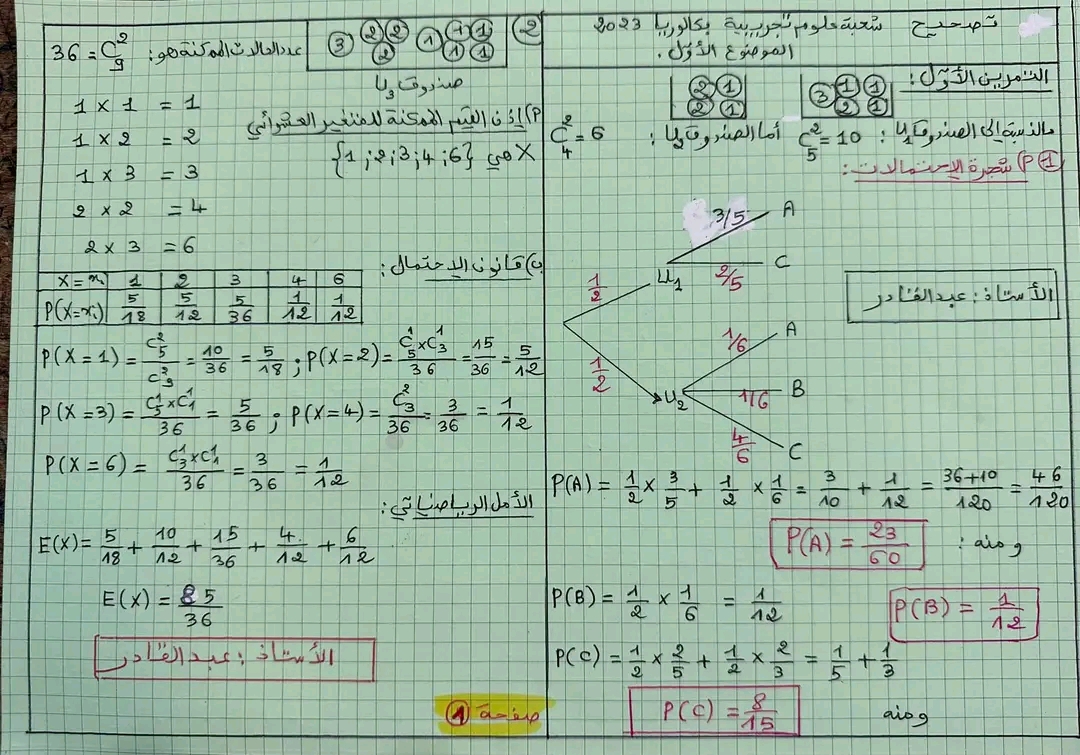 تصحيح شعبة علوم تجريبية بكالوريا 2023
الموضوع الأول.
التمرين الأول:
3 1 1 2 1
2 1 2 1
بالنسبة إلى الصندوق U₁: C²₅ = 10 أما الصندوق U₂: C²₄ = 6
1) P) شجرة الإحتمالات:
1/2 U₁ 3/5 A
2/5 C
1/2 U₂ 1/6 A
1/6 B
4/6 C
الأستاذ: عبد القادر
P(A) = 1/2 × 3/5 + 1/2 × 1/6 = 3/10 + 1/12 = 36+10/120 = 46/120
ومنه: P(A) = 23/60
P(B) = 1/2 × 1/6 = 1/12 P(B) = 1/12
P(C) = 1/2 × 2/5 + 1/2 × 2/3 = 1/5 + 1/3
ومنه P(C) = 8/15
2
3 2 2 2 1 1 1 1 1
صندوق U₃
عدد الحالات الممكنة هو: C²₉ = 36
1 × 1 = 1
1 × 2 = 2
1 × 3 = 3
2 × 2 = 4
2 × 3 = 6
P) إذن القيم الممكنة للمتغير العشوائي
X هي {1;2;3;4;6}
ب) قانون الإحتمال:
X = xᵢ 1 2 3 4 6
P(X=xᵢ) 5/18 5/12 5/36 1/12 1/12
P(X=1) = C²₅/C²₉ = 10/36 = 5/18 ; P(X=2) = C¹₅×C¹₃/36 = 15/36 = 5/12
P(X=3) = C¹₅×C¹₁/36 = 5/36 ; P(X=4) = C²₃/36 = 3/36 = 1/12
P(X=6) = C¹₃×C¹₁/36 = 3/36 = 1/12
الأمل الرياضياتي:
E(X) = 5/18 + 10/12 + 15/36 + 4/12 + 6/12
E(X) = 85/36
الأستاذ: عبد القادر
صفحة 1